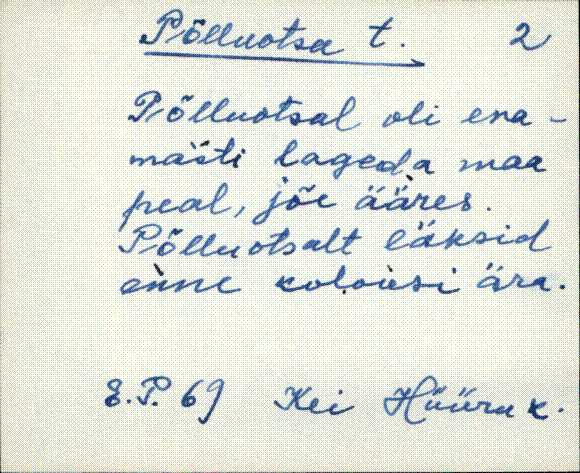 Põlluotsa t. 2
Põlluotsal oli ena-
mästi lageda maa
peal, jõe ääres.
Põlluotsalt läksid
enne kolousi ära.
E.P. 69 Kei Hüüru k.